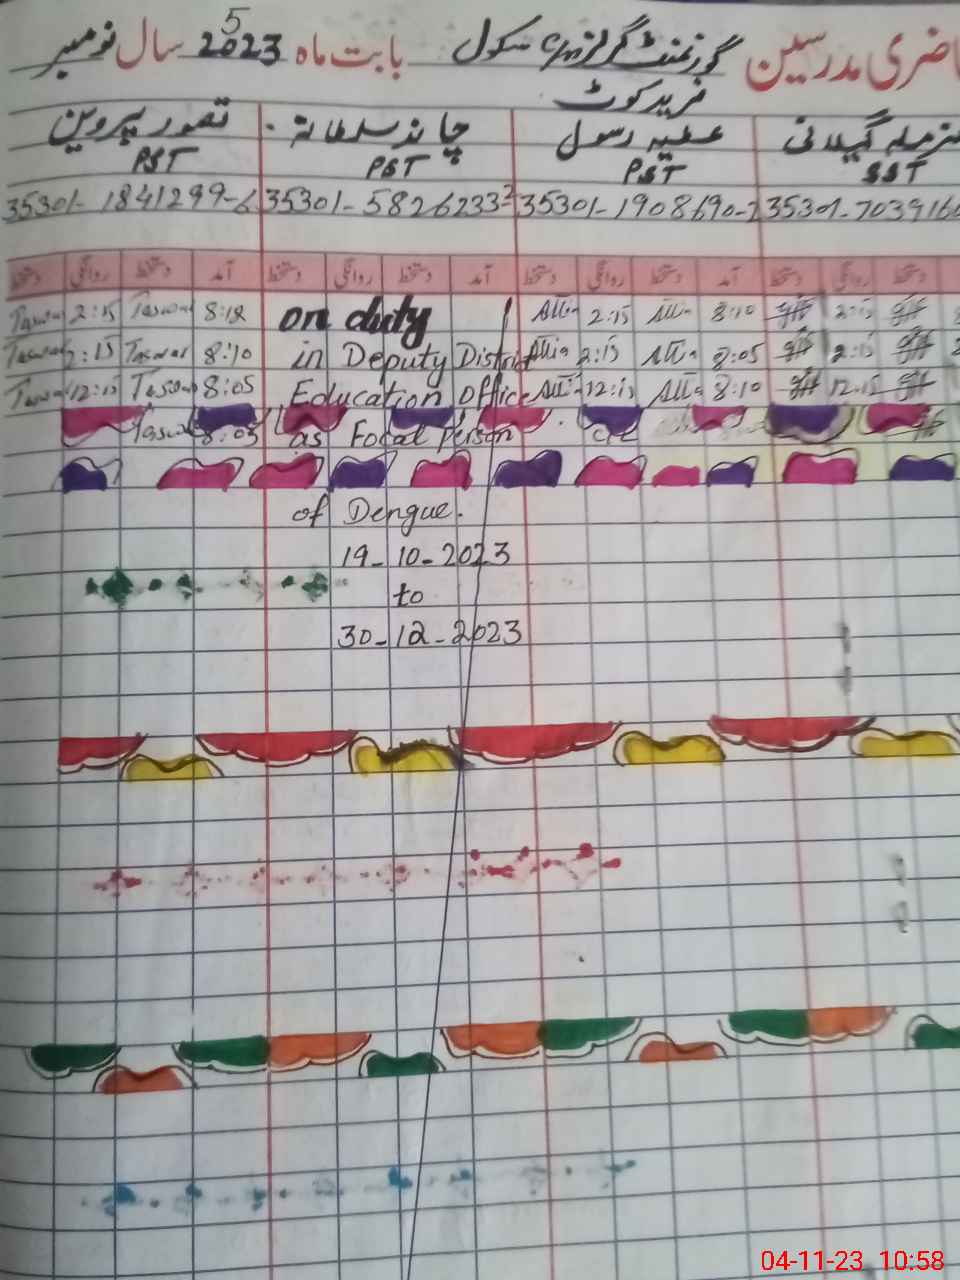 حاضری مدرسین گورنمنٹ گرلز سکول بابت ماہ 2023 سال نومبر
5
فرید کوٹ
گیلانی عطیہ رسول چاند سلطانہ تصور پروین
SST PST PST PST
35301-7039160 35301-1908690- 35301-5826233 35301-1841299-6
دستخط روانگی دستخط آمد دستخط روانگی دستخط آمد دستخط روانگی دستخط آمد دستخط روانگی دستخط
Taswar 2:15 Taswar 8:12 on duty Attia 2:15 Attia 8:10 2:15
Taswar 2:15 Taswar 8:10 in Deputy District Attia 2:15 Attia 8:05 2:15
Taswar 12:15 Taswar 8:05 Education Office Atti 12:15 Attia 8:10 12:15
Taswar 8:03 as Focal Person
of Dengue.
19-10-2023
to
30-12-2023
04-11-23 10:58